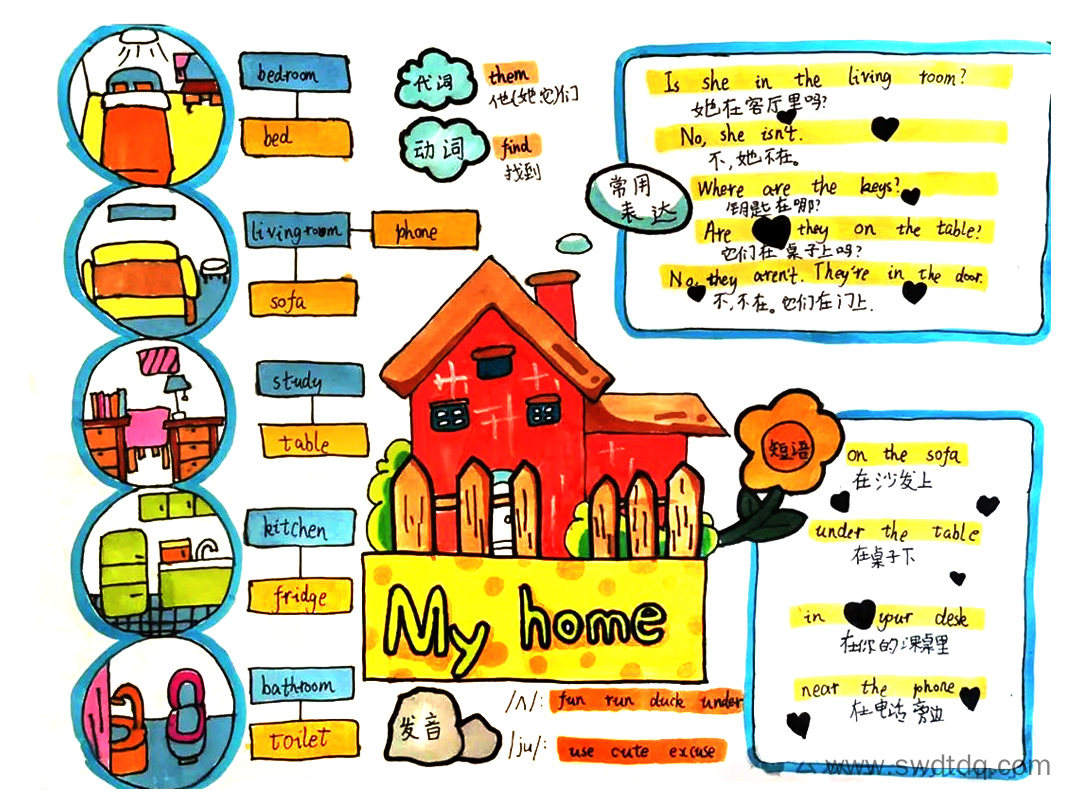 bedroom
bed
livingroom
phone
sofa
study
table
kitchen
fridge
bathroom
toilet
代词
them
他(她它)们
动词
find
找到
常用
表达
Is she in the living room?
她在客厅里吗?
No, she isn't.
不,她不在。
Where are the keys?
钥匙在哪?
Are they on the table?
它们在桌子上吗?
No, they aren't. They're in the door.
不,不在。它们在门上.
My home
短语
on the sofa
在沙发上
under the table
在桌子下
in your desk
在你的课桌里
near the phone
在电话旁边
发音
/ʌ/: fun run duck under
/ju/: use cute excuse
www.swdtdq.com